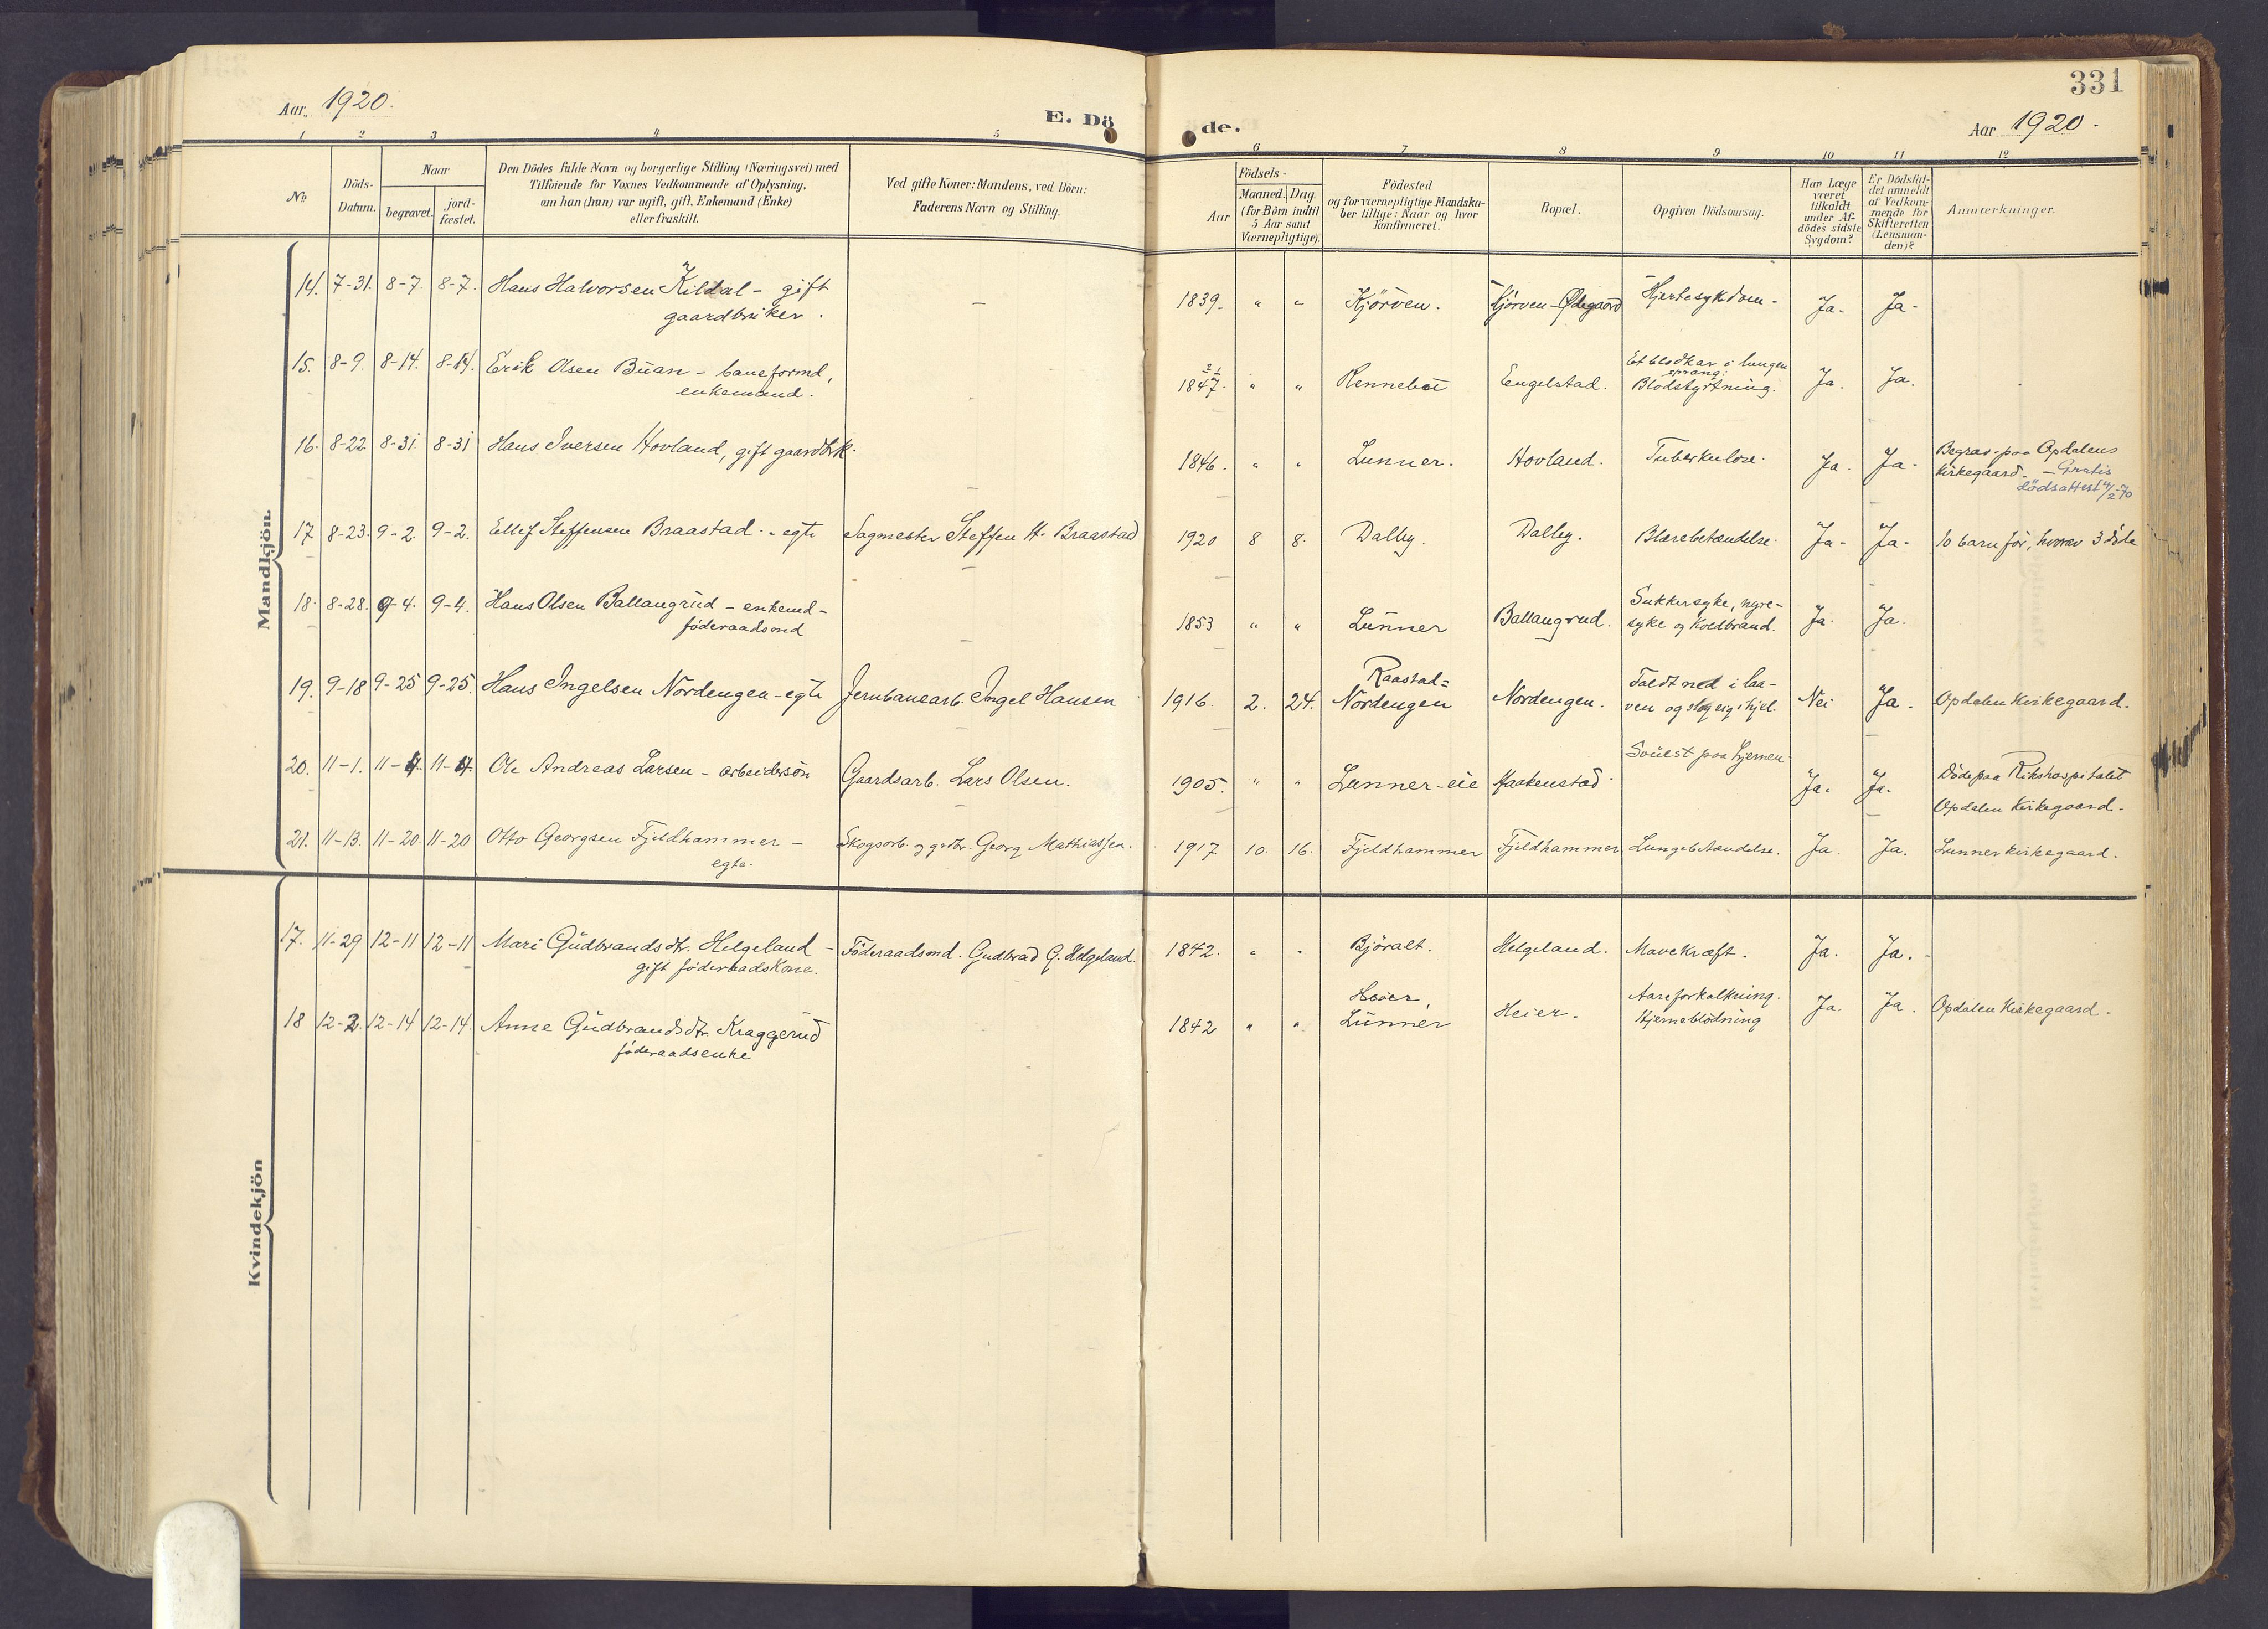 331
Aar 1920.
E. Dö de.
Aar 1920.
1 2 3 4 5 6 7 8 9 10 11 12
No
Döds-Datum.
Naar
begravet.
jord-fæstet.
Den Dödes fulde Navn og borgerlige Stilling (Næringsvei) med
Tilföiende for Voxnes Vedkommende af Oplysning,
om han (hun) var ugift, gift, Enkemand (Enke)
eller fraskilt.
Ved gifte Koner: Mandens, ved Börn:
Faderens Navn og Stilling.
Födsels-
Aar
Maaned. Dag.
(for Börn indtil
5 Aar samt
Værnepligtige).
Födested
og for værnepligtige Mandska-
ber tillige: Naar og hvor
konfirmeret.
Bopæl.
Opgiven Dödsaarsag.
Har Læge
været
tilkaldt
under Af-
dödes sidste
Sygdom?
Er Dödsfal-
det anmeldt
af Vedkom-
mende for
Skifteretten
(Lensman-
den)?
Anmærkninger.
Mandkjön.
14. 7-31. 8-7. 8-7. Hans Halvorsen Kildal - gift
gaardbruker.
1839. " " Kjörven. Kjörven-Ødegaard Hjertesykdom. Ja. Ja.
15. 8-9. 8-14. 8-14. Erik Olsen Buan - baneformd,
enkemand.
2/1
1847. " " Rennebu Engelstad. Et blodkar i lungen
sprang:
Blodstyrtning. Ja. Ja.
16. 8-22 8-31. 8-31 Hans Iversen Hovland, gift gaardbrk.
1846. " " Lunner. Hovland. Tuberkulose. Ja. Ja. Begrav. paa Opdalens
Kirkegaard. - Gratis
dödsattest 4/2-70
17 8-23. 9-2. 9-2. Ellef Steffensen Braastad - egte Sagmester Steffen H. Braastad 1920 8 8. Dalby. Dalby. Blærebetændelse. Ja. Ja. 10 barn för, hvorav 3 döde
18. 8-28. 9-4. 9-4. Hans Olsen Ballangrud - enkemd -
föderaadsmd
1853 " " Lunner Ballangrud. Sukkersyke, nyre-
syke og Koldbrand. Ja. Ja.
19. 9-18 9-25 9-25. Hans Ingelsen Nordengen - egte Jernbanearb. Ingel Hansen 1916. 2. 24. Raastad=
Nordengen Nordengen. Faldt ned i laa-
ven og slog sig ihjel. Nei Ja. Opdalen Kirkegaard.
20. 11-1. 11-7. 11-7. Ole Andreas Larsen - arbeidersön Gaardsarb. Lars Olsen. 1905. " " Lunner-eie Haakenstad. Svulst paa hjernen Ja. Ja. Döde paa Rikshospitalet
Opdalen Kirkegaard.
21. 11-13. 11-20. 11-20 Otto Georgsen Fjeldhammer -
egte.
Skogsarb. og grdbr. Georg Mathiassen. 1917 10. 16. Fjeldhammer Fjeldhammer Lungebetændelse. Ja. Ja. Lunner kirkegaard.
Kvindekjön
17. 11-29 12-11 12-11 Mari Gudbrandsdtr. Helgeland -
gift föderaadskone.
Föderaadsmd. Gudbrad G. Helgeland. 1842. " " Björalt. Helgeland. Mavekræft. Ja. Ja.
18 12-2. 12-14 12-14. Anne Gudbrandsdtr. Kraggerud
föderaadsenke
1842 " " Heier,
Lunner Heier. Aareforkalkning.
Hjerneblödning Ja. Ja. Opdalen Kirkegaard.